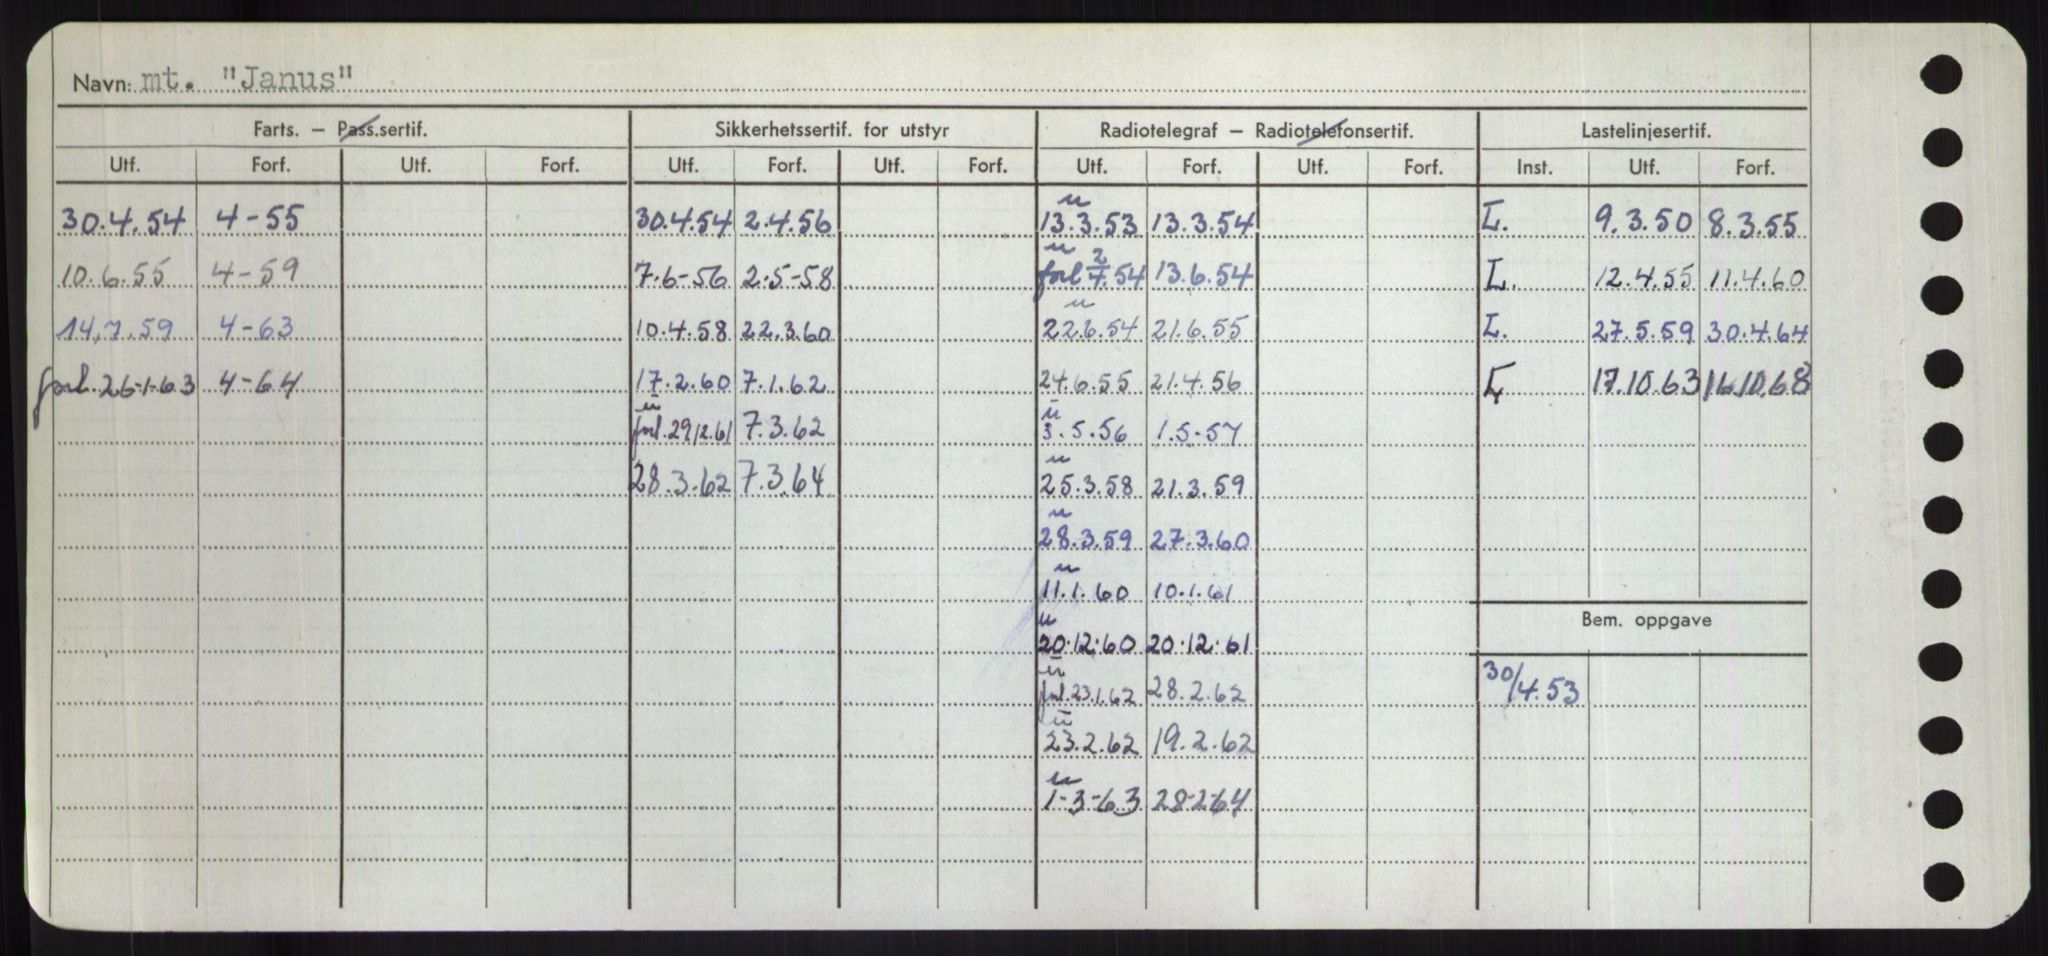 Navn: mt. "Janus"
Farts. – Pass.sertif. Sikkerhetssertif. for utstyr Radiotelegraf – Radiotelefonsertif. Lastelinjesertif.
Utf. Forf. Utf. Forf. Utf. Forf. Utf. Forf. Utf. Forf. Utf. Forf. Inst. Utf. Forf.
u
30.4.54 4-55 30.4.54 2.4.56 13.3.53 13.3.54 L. 9.3.50 8.3.55
u
10.6.55 4-59 7.6-56 2.5-58 forl 2/4.54 13.6.54 L. 12.4.55 11.4.60
u
14.7.59 4-63 10.4.58 22.3.60 22.6.54 21.6.55 L. 27.5.59 30.4.64
forl. 26-1-63 4-64 17.2.60 7.1.62 24.6.55 21.4.56 L 17.10.63 16.10.68
u u
forl. 29/12.61 7.3.62 3.5.56 1.5-57
u
28.3.62 7.3.64 25.3.58 21.3.59
u
28.3.59 27.3.60
u
11.1.60 10.1.61
Bem. oppgave
u
20.12.60 20.12.61
u
forl. 23.1.62 28.2.62 30/4.53
u
23.2.62 19.2.62
u
1-3-63 28-2-64